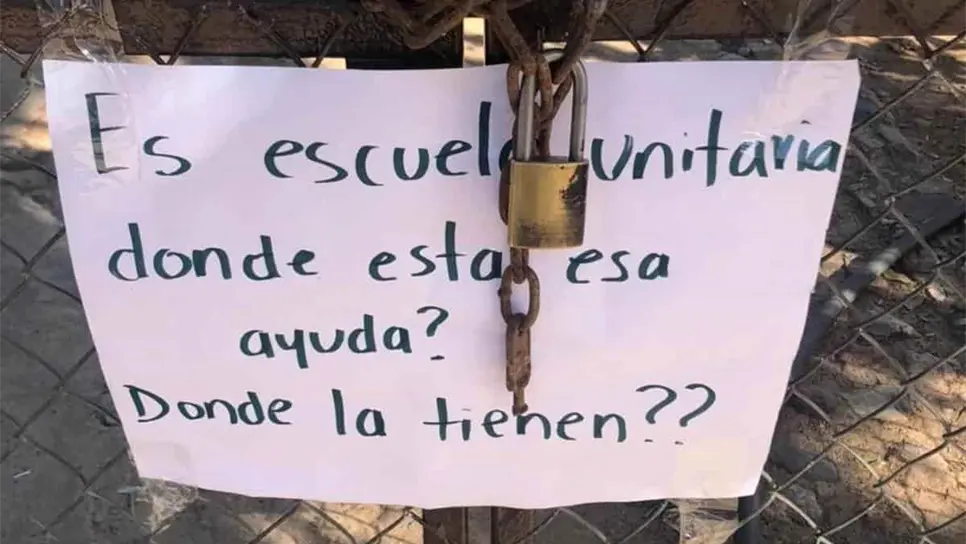 Es escuela unitaria
donde esta esa
ayuda?
Donde la tienen??